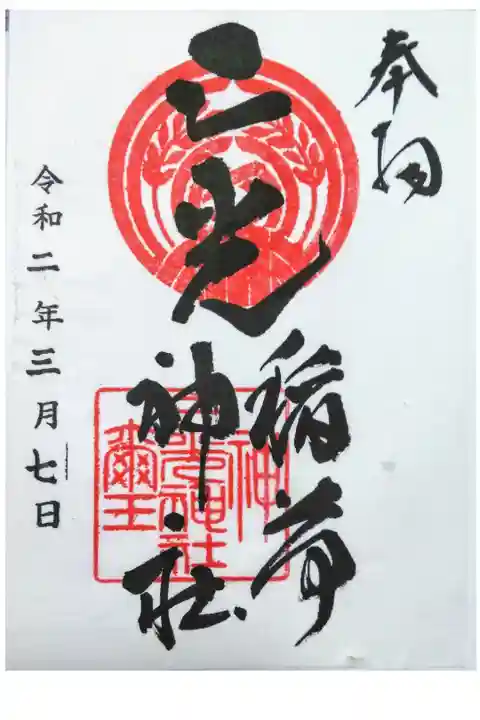 奉拝
三光
稲荷
神社
令和二年三月七日